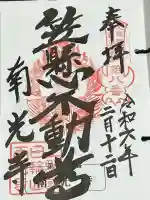 奉拝
令和六年
二月十二日
笠懸不動尊
南光寺